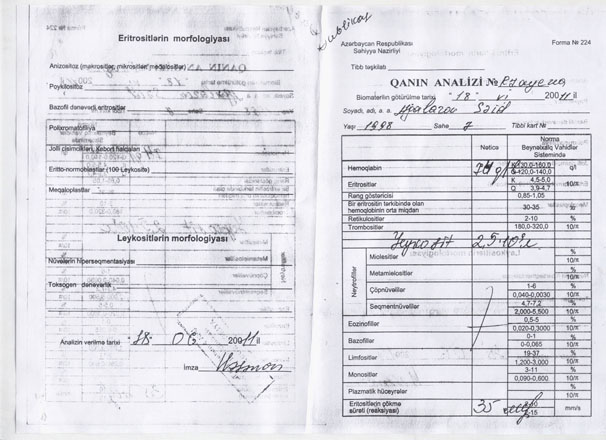 Forma № 224
Eritrositlərin morfologiyası
Anizositoz (makrositlər, mikrositlər, meqalositlər)
Poykilositoz
Bazofil dənəvərli eritrositlər
Polixromatofiliya
Jolli cisimcikləri, Kebort halqaları
Eritro-normoblastlar (100 Leykositə)
Meqaloplastlar
Leykositlərin morfologiyası
Nüvələrin hiperseqmentasiyası
Toksogen dənəvərlik
Analizin verilmə tarixi 18. 06 2011 il
İmza
Dublikat
Azərbaycan Respublikası
Səhiyyə Nazirliyi
Forma № 224
Tibb təşkilatı
QANIN ANALİZİ №
Biomaterilın götürülmə tarixi "18" vi 2011 il
Soyadı, adı, a. a. Ağalarov Səid
Yaşı 1998 Sahə 7 Tibbi kart №
Nəticə
Norma
Beynəlxalq Vahidlər
Sistemində
Hemoqlabin 74 g/l K 130,0-160,0 q/l
Q 120,0-140,0
Eritrositlər K 4,5-5,0 10/л
Q 3,9-4,7
Rəng göstəricisi 0,85-1,05
Bir eritrositin tərkibində olan
hemoqlobinin orta miqdarı 30-35
Retikulositlər 2-10 %
Trombositlər 180,0-320,0 10/л
Leykosit 2,5·10⁹л
Neytrofillər
Mielositlər % 10/л
Metamielositlər % 10/л
Çöpnüvəlilər 1-6 %
0,040-0,0030 10/л
Seqmentnüvəlilər 4,7-7,2 %
2,000-5,500 10/л
Eozinofillər 0,5-5 %
0,020-0,3000 10/л
Bazofillər 0-1 %
0-0,065 10/л
Limfositlər 19-37 %
1,200-3,000 10/л
Monositlər 3-11 %
0,090-0,600 10/л
Plazmatik hüceyrələr % 10/л
Eritositlərin çökmə
sürəti (reaksiyası) 35 2-15 mm/s